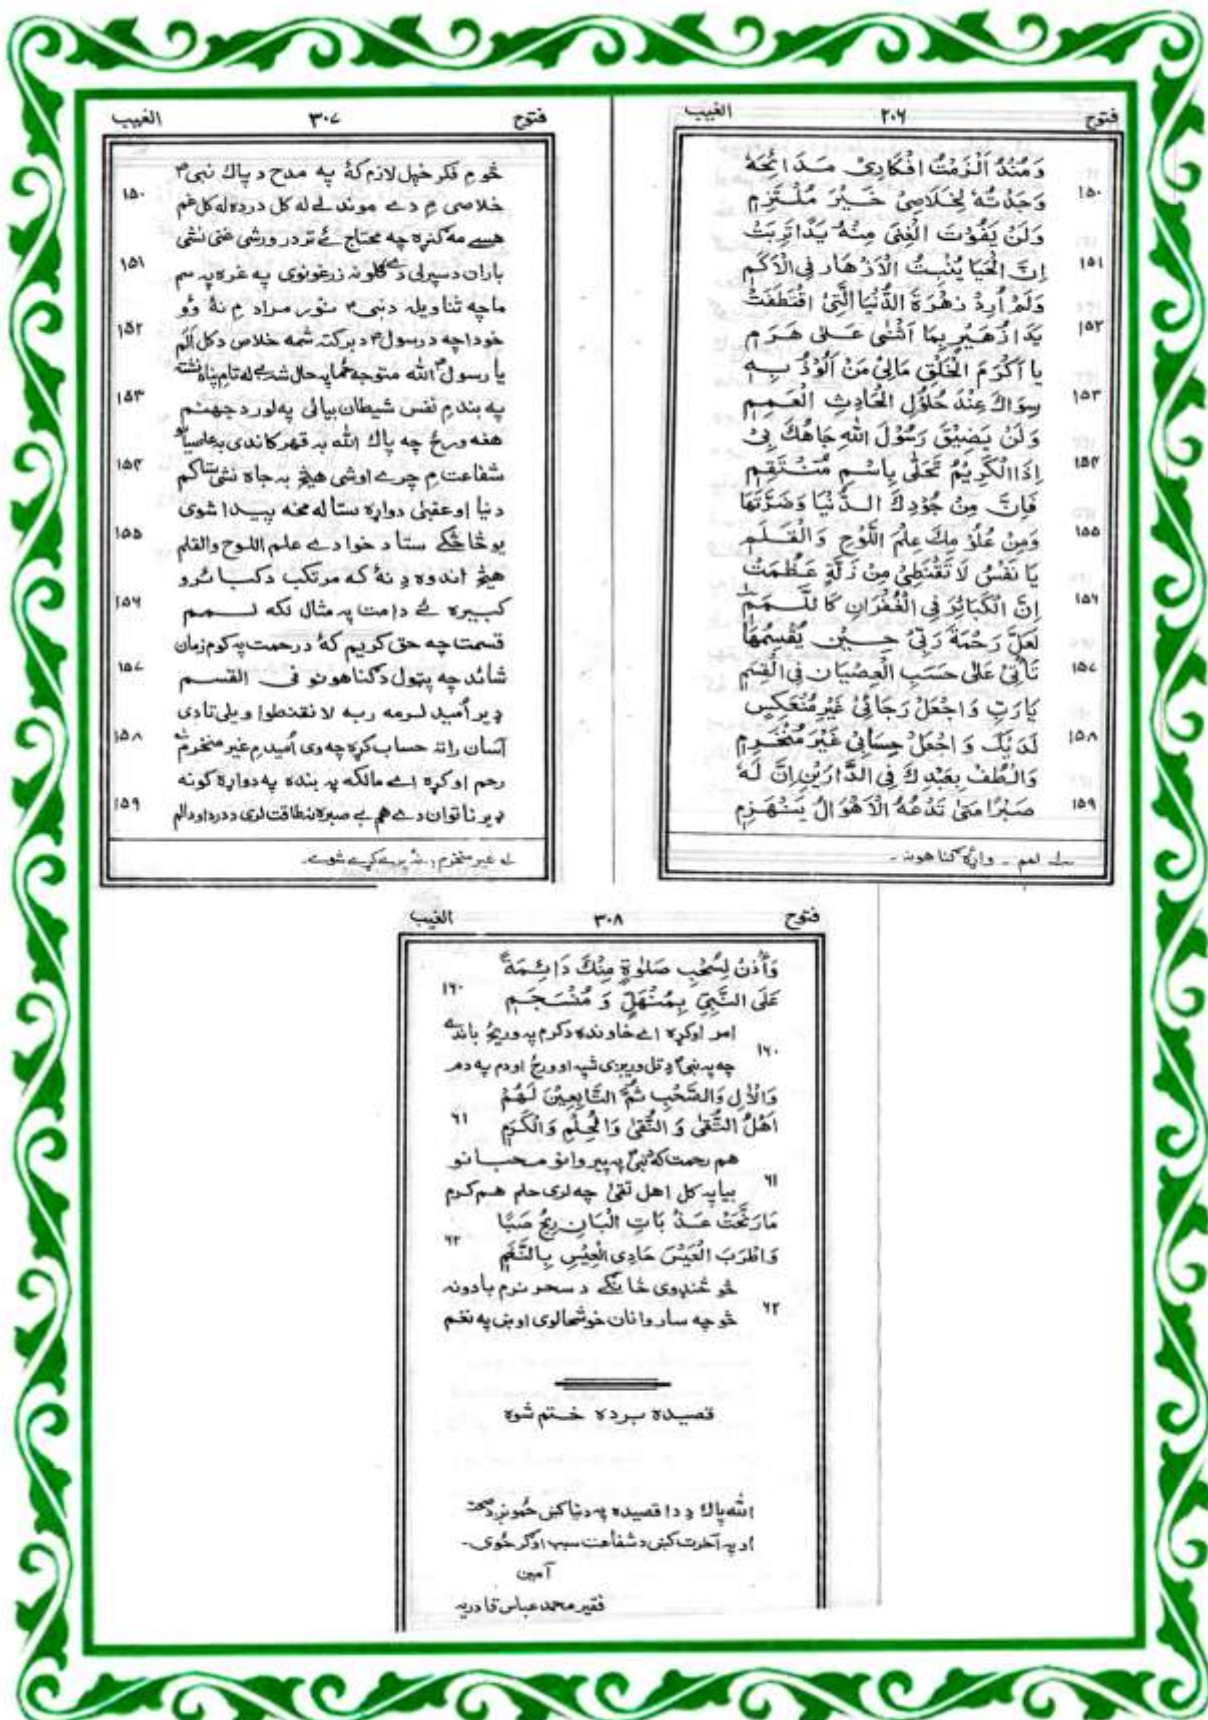 فتوح ٢٠٦ الغيب
وَمُنْذُ اَلْزَمْتُ اَفْكَارِیْ مَدَائِحَهٗ
وَجَدْتُهٗ لِخَلَاصِیْ خَيْرَ مُلْتَزِمٖ ١٥٠
وَلَنْ يَفُوْتَ الْغِنٰی مِنْهُ يَدًا تَرِبَتْ
اِنَّ الْحَيَا يُنْبِتُ الْاَزْهَارَ فِی الْاَكَمٖ ١٥١
وَلَمْ اُرِدْ زَهْرَةَ الدُّنْيَا الَّتِیْ اقْتَطَفَتْ
يَدَا زُهَيْرٍ بِمَا اَثْنٰی عَلٰی هَرَمٖ ١٥٢
يَا اَكْرَمَ الْخَلْقِ مَالِیْ مَنْ اَلُوْذُ بِهٖ
سِوَاكَ عِنْدَ حُلُوْلِ الْحَادِثِ الْعَمِمٖ ١٥٣
وَلَنْ يَضِيْقَ رَسُوْلَ اللّٰهِ جَاهُكَ بِیْ
اِذَا الْكَرِيْمُ تَحَلّٰی بِاسْمِ مُنْتَقِمٖ ١٥٤
فَاِنَّ مِنْ جُوْدِكَ الدُّنْيَا وَضَرَّتَهَا
وَمِنْ عُلُوْمِكَ عِلْمَ اللَّوْحِ وَالْقَلَمٖ ١٥٥
يَا نَفْسُ لَا تَقْنَطِیْ مِنْ زَلَّةٍ عَظُمَتْ
اِنَّ الْكَبَائِرَ فِی الْغُفْرَانِ كَاللَّمَمٖ ١٥٦
لَعَلَّ رَحْمَةَ رَبِّیْ حِيْنَ يَقْسِمُهَا
تَأْتِیْ عَلٰی حَسَبِ الْعِصْيَانِ فِی الْقِسَمٖ ١٥٧
يَارَبِّ وَاجْعَلْ رَجَائِیْ غَيْرَ مُنْعَكِسٍ
لَدَيْكَ وَاجْعَلْ حِسَابِیْ غَيْرَ مُنْخَرِمٖ ١٥٨
وَالْطُفْ بِعَبْدِكَ فِی الدَّارَيْنِ اِنَّ لَهٗ
صَبْرًا مَتٰی تَدْعُهُ الْاَهْوَالُ يَنْهَزِمٖ ١٥٩
لمم ۔ واړه ګناهونه ۔
فتوح ٣٠٧ الغيب
څو مِ فکر خپل لازم کهٔ په مدح د پاك نبیؐ
خلاصی مِ دے موندلے له کل درده له کل غم ١٥٠
هسے مه ګنړه چه محتاج ئے تر در ورشی غنی نشی
باران د سپرلی دے ګلونه زرغونوی په غره په سم ١٥١
ماچه ثنا ویله د نبیؐ نور مراد مِ نهٔ وؤ
خوداچه د رسولؐ د برکته شمه خلاص د کل اَلَم ١٥٢
یا رسولؐ الله متوجه حما په حال شه بے له تا مِ پناه نشته
په بند مِ نفس شیطان بیائی په لور د جهنم ١٥٣
هغه ورځ چه پاك الله به قهر کاندی په عاصیانو
شفاعت مِ چرے اوشی هیڅ به جاه نشی ستا کم ١٥٤
دنیا او عقبیٰ دواړه ستا له مخه پیدا شوی
یو څاڅکے ستا د خوا دے علم اللوح والقلم ١٥٥
هیڅ اندوه دِ نهٔ که مرتکب د کبائرو
کبیره ئے د امت په مثال لکه لمم ١٥٦
قسمت چه حق کریم کهٔ د رحمت په کوم زمان
شائد چه پټول د ګناهونو فی القسم ١٥٧
ډیر اُمید لرمه ربه لا تقنطوا ویلی تا دی
آسان راته حساب کړه چه وی اُمید مِ غیر منخرم ١٥٨
رحم اوکړه اے مالکه په بنده په دواړه کونه
ډیر ناتوان دے هم بے صبره نه طاقت لری د درد او د الم ١٥٩
له غیر منخرم: نه پرے کړے شوے۔
فتوح ٣٠٨ الغيب
وَأْذَنْ لِسُحْبِ صَلٰوةٍ مِنْكَ دَائِمَةً
عَلَی النَّبِیِّ بِمُنْهَلٍّ وَ مُنْسَجِمٖ ١٦٠
امر اوکړه اے خاونده د کرم په وریځ باندے
چه په نبیؐ دِ تل وریږی شپه او ورځ او دم په دم ١٦٠
وَالْاٰلِ وَالصَّحْبِ ثُمَّ التَّابِعِيْنَ لَهُمْ
اَهْلُ التُّقٰی وَ النُّقٰی وَالْحِلْمِ وَالْكَرَمٖ ٦١
هم رحمت که نبیؐ په پیروانو محبانو
بیا په کل اهل تقیٰ چه لری حلم هم کرم ٦١
مَا رَنَّحَتْ عَذَبَاتِ الْبَانِ رِيْحُ صَبًا
وَاَطْرَبَ الْعِيْسَ حَادِی الْعِيْسِ بِالنَّغَمٖ ٦٢
څو څنډوی څانګے د سحر نرم بادونه
څو چه ساروانان خوشحالوی اوښ په نغم ٦٢
قصیده برده ختم شوه
الله پاك دِ دا قصیده په دنیا کښ حُمونږ د صحت
او په آخرت کښ د شفاعت سبب اوګرځوی۔
آمین
فقیر محمد عباس قادریه